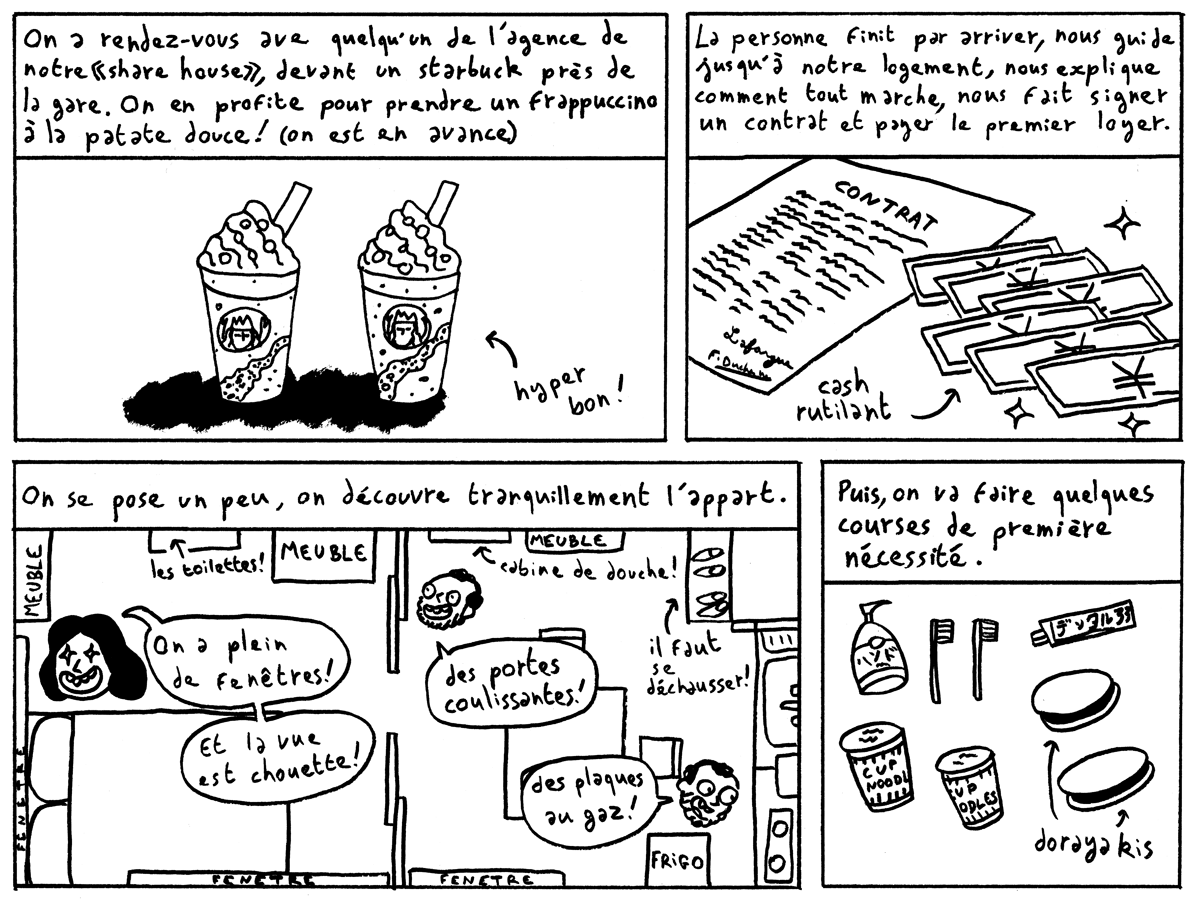 On a rendez-vous ave quelqu'un de l'agence de
notre «share house», devant un starbuck près de
la gare. On en profite pour prendre un frappuccino
à la patate douce! (on est en avance)
hyper
bon!
La personne finit par arriver, nous guide
jusqu'à notre logement, nous explique
comment tout marche, nous fait signer
un contrat et payer le premier loyer.
CONTRAT
Lafargue
cash
rutilant
¥
¥
¥
¥
On se pose un peu, on découvre tranquillement l'appart.
MEUBLE
les toilettes!
MEUBLE
On a plein
de fenêtres!
Et la vue
est chouette!
FENETRE
FENETRE
MEUBLE
cabine de douche!
il faut
se
déchausser!
des portes
coulissantes!
des plaques
au gaz!
FRIGO
FENETRE
Puis, on va faire quelques
courses de première
nécessité.
ハンド
CUP
NOODL
UP
ODLES
dorayakis